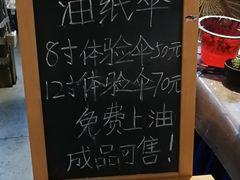 油纸伞
8寸体验伞50元
12寸体验伞70元
免费上油
成品可售！